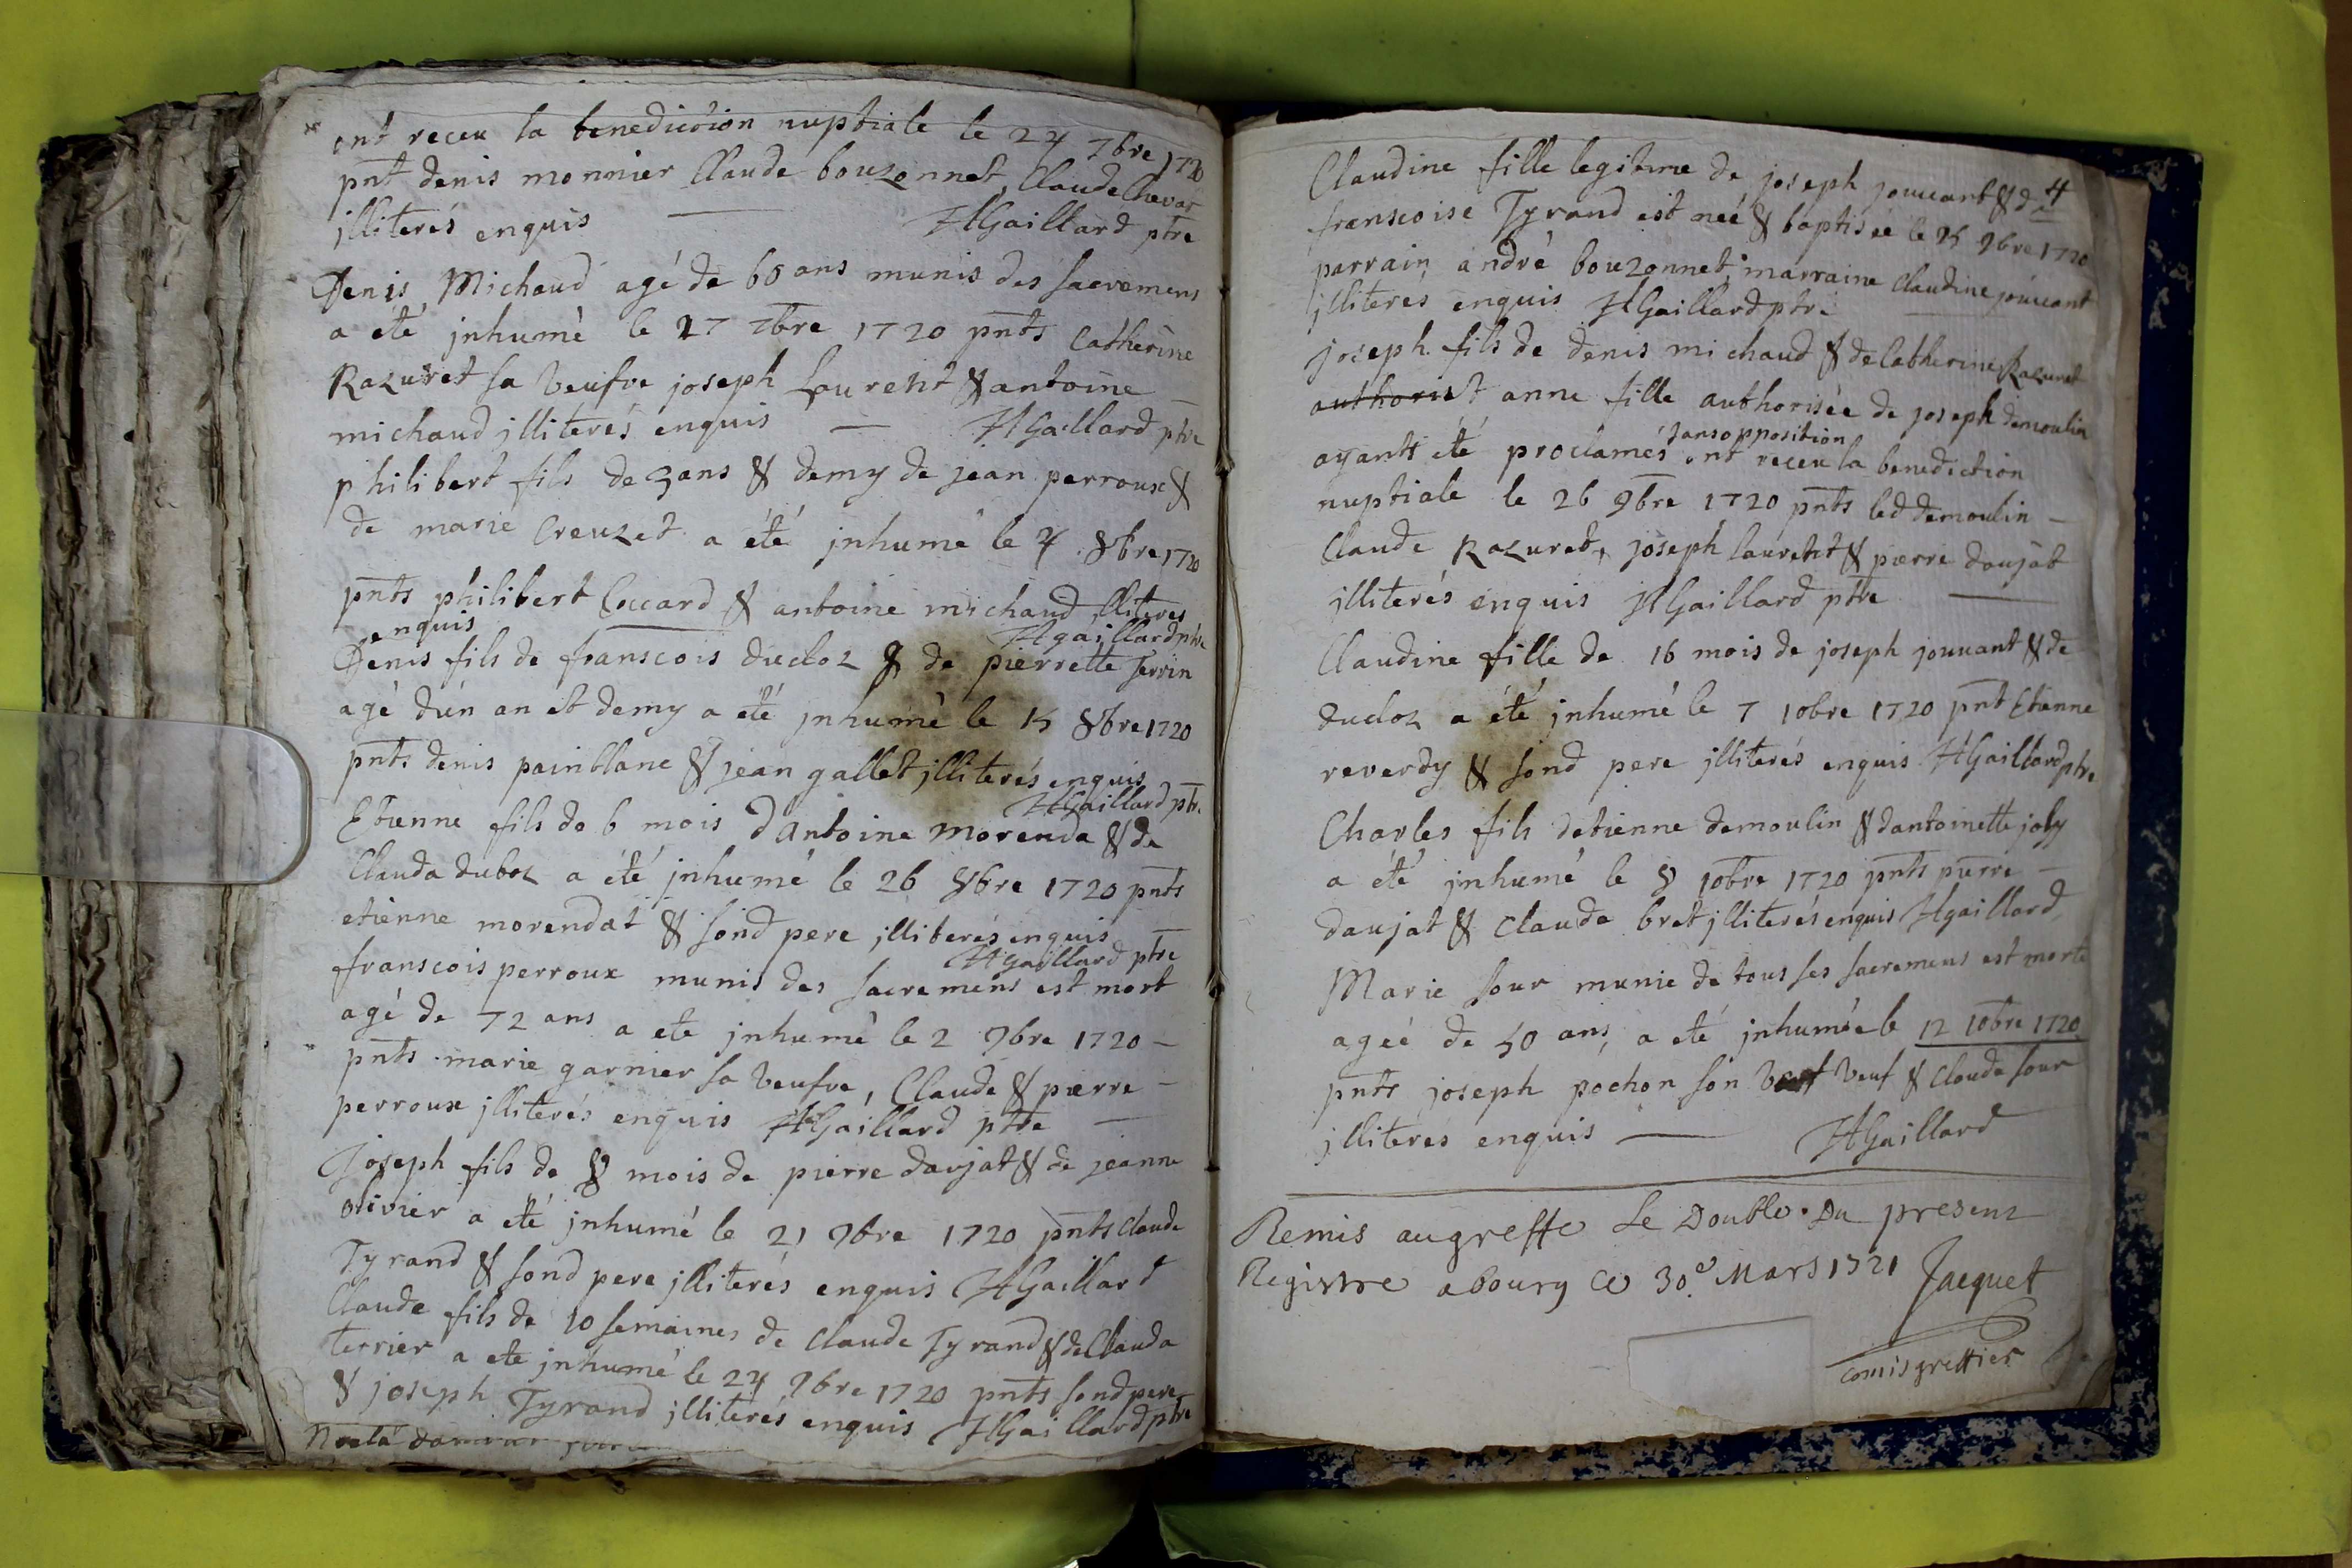 ont receu la benediction nuptiale le 24 7bre 1720
pnt denis monnier Claude bouzonnet, Claude Chevat
jlliterés enquis HGaillard ptre
Denis Michaud agé de 60 ans munis des sacremens
a été jnhumé le 27 7bre 1720 pnts Catherine
Razuret sa veufve joseph Laurent & antoine
michaud jlliterés enquis HGaillard ptre
philibert fils de 3 ans & demy de jean perroux &
de marie Creuzet a été jnhumé le 4 8bre 1720
pnts philibert Coccard & antoine michaud jlliteres
enquis HGaillard ptre
Denis fils de franscois ducloz & de pierrette Terrin
agé d'ún an et demy a été jnhumé le 15 8bre 1720
pnts denis painblanc & jean gallet jlliterés enquis
HGaillard ptre
Etienne fils de 6 mois dAntoine Morenda & de
Clauda duboz a été jnhumé le 26 8bre 1720 pnts
etienne morendat & sond pere jlliterés enquis
HGaillard ptre
franscois perroux munis des sacremens est mort
agé de 72 ans a ete jnhumé le 2 9bre 1720 -
pnts marie garnier sa veufve, Claude & pierre -
perroux jlliterés enquis HGaillard ptre
Joseph fils de 8 mois de pierre daujat & de jeanne
olivier a eté jnhumé le 21 9bre 1720 pnts Claude
Tyrand & sond pere jlliterés enquis HGaillard
Claude fils de 10 semaines de Claude Tyrand & de Clauda
terrier a ete jnhumé le 24 9bre 1720 pnts sond pere
& joseph Tyrand jlliterés enquis HGaillard ptre
4
Claudine fille legitime de joseph jouuant & d
franscoise Tyrand est neé & baptisée le 25 9bre 1720
parrain andré bouzonnet, marraine Claudine joúuant
jlliterés enquis HGaillard ptre
joseph fils de denis michaud & de Catherine Razuret
authorist anne fille authorisée de joseph demoulin
ayants eté proclamés sans opposition ont receu la benediction
nuptiale le 26 9bre 1720 pnts led demoulin -
Claude Razuret, joseph laurent & pierre daujat
jlliterés enquis HGaillard ptre
Claudine fille de 16 mois de joseph jouuant & de
ducloz a été jnhumé le 7 10bre 1720 pnt Etienne
reverdy & sond pere jlliterés enquis HGaillard ptre
Charles fils detienne demoulin & dantoinette joly
a été jnhumé le 8 10bre 1720 pnts pierre -
daujat & Claude bret jlliterés enquis HGaillard
Marie sour munie de tous ses sacremens est morte
ageé de 50 ans, a eté jnhumée le 12 10bre 1720
pnts joseph pochon son veuf & Claude sour
jlliterés enquis HGaillard
Remis au greffe Le Double Du present
Registre a bourg ce 30e Mars 1721 Jacquet
comis greffier